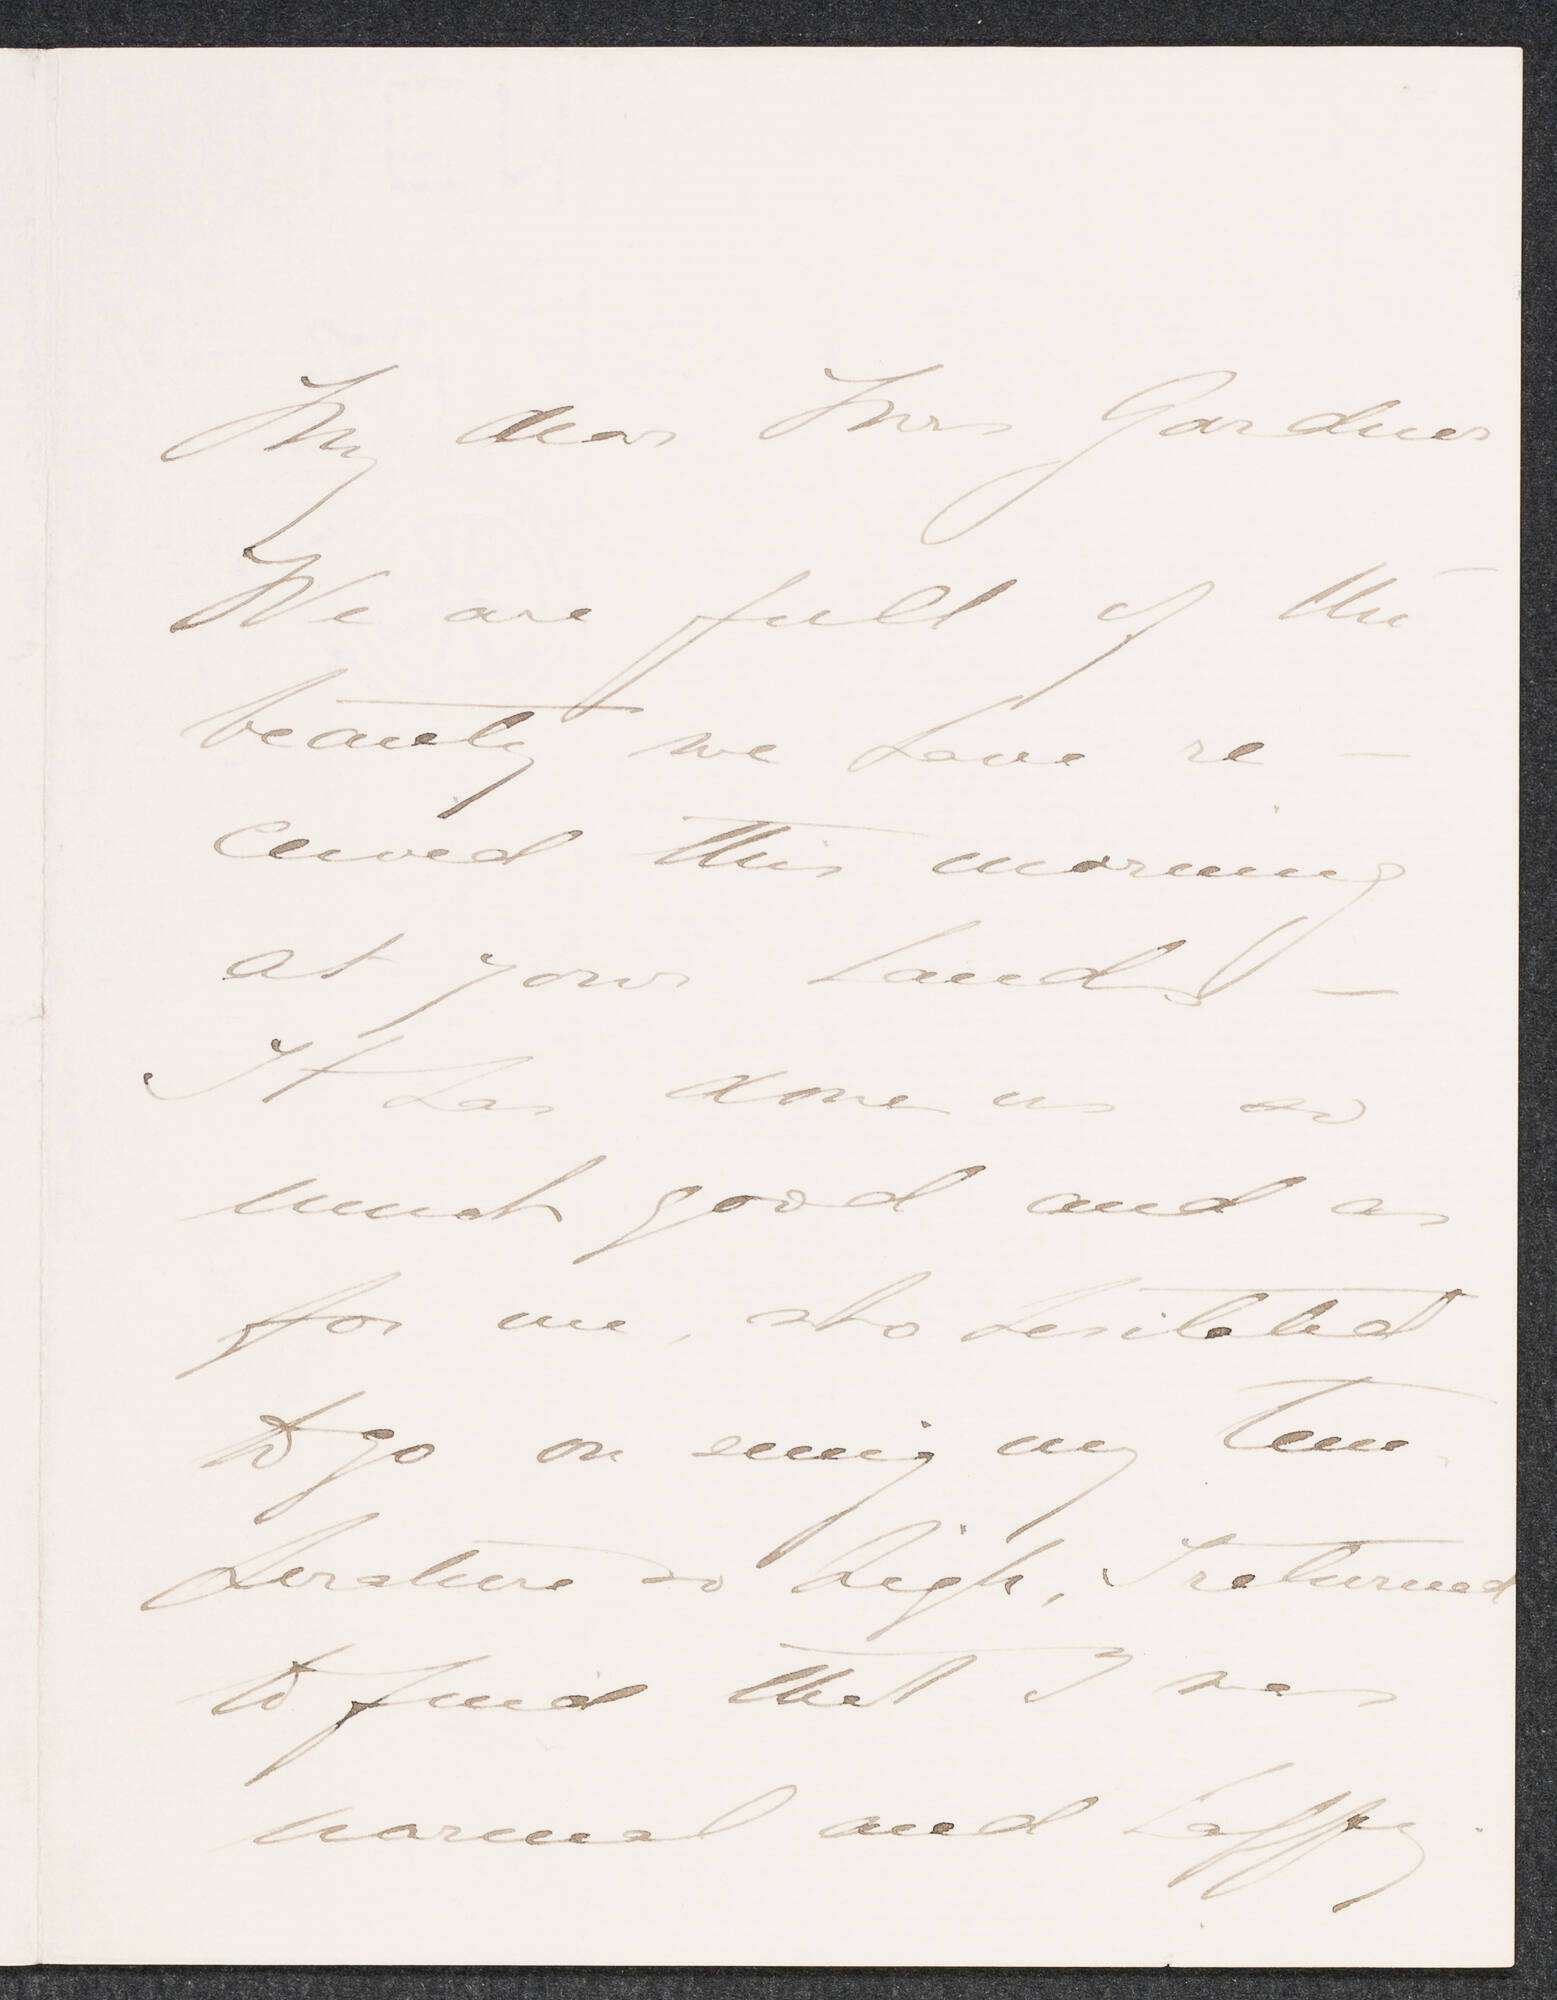 My dear Mrs Gardner
We are full of the
beauty we have re-
ceived this morning
at your hands -
It has done us so
much good and as
for me, who hesitated
to go on seeing my tem-
perature so high, I returned
to find that I was
normal and happy.